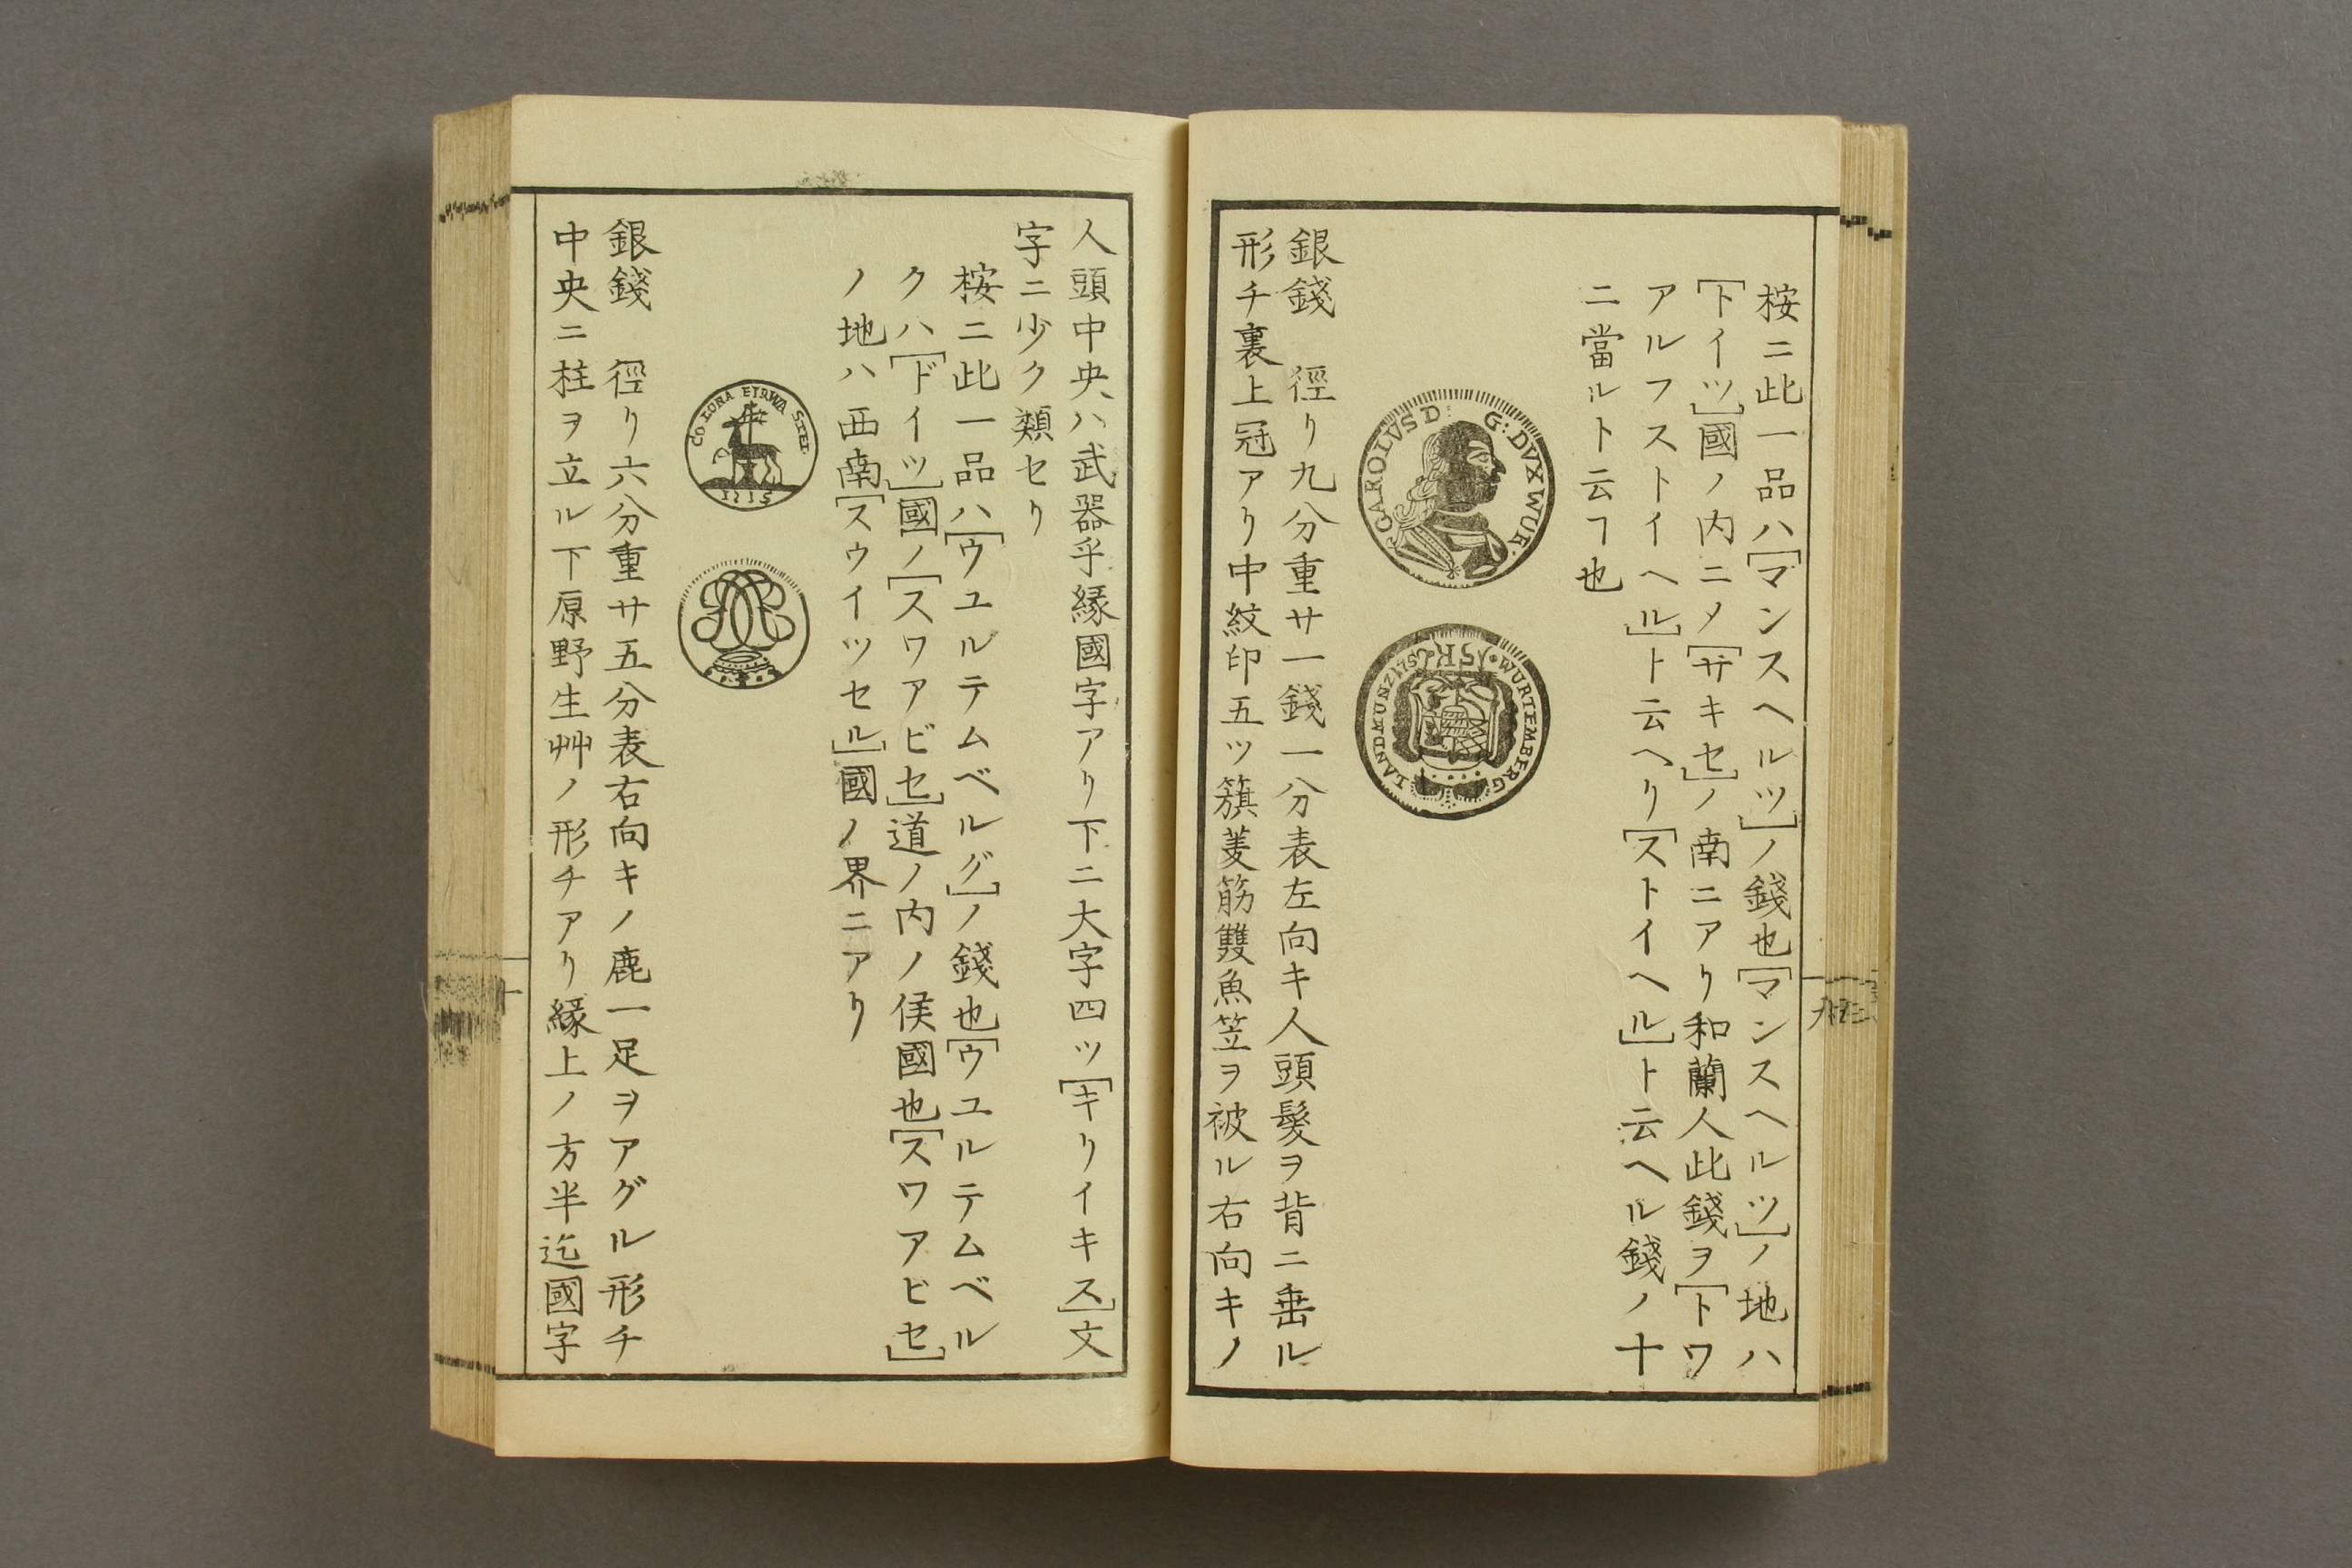 桉ニ此一品ハ[マンスヘルツ]ノ錢也[マンスヘルツ]ノ地ハ
[下イツ]國ノ内ニメ[サキセ]ノ南ニアリ和蘭人此錢ヲ[トワ
アルフストイヘル]ト云ヘリ[ストイヘル]ト云ヘル錢ノ十
ニ當ルト云ヿ也
CAROLVS D: G: DVX WUR.
WURTEMBERG
LANDMUNZ
銀錢 徑リ九分重サ一錢一分表左向キ人頭髮ヲ背ニ垂ル
形チ裏上冠アリ中紋印五ツ籏菱筋雙魚笠ヲ被ル右向キノ
人頭中央ハ武器乎緣國字アリ下ニ大字四ツ[キリイキス]文
字ニ少ク類セリ
桉ニ此一品ハ[ウユルテムベルグ]ノ錢也[ウユルテムベル
クハ[ドイツ]國ノ[スワアビセ]道ノ内ノ侯國也[スワアビセ]
ノ地ハ西南[スウイツセル]國ノ界ニアリ
1715
銀錢 徑リ六分重サ五分表右向キノ鹿一足ヲアグル形チ
中央ニ柱ヲ立ル下原野生艸ノ形チアリ緣上ノ方半迄國字